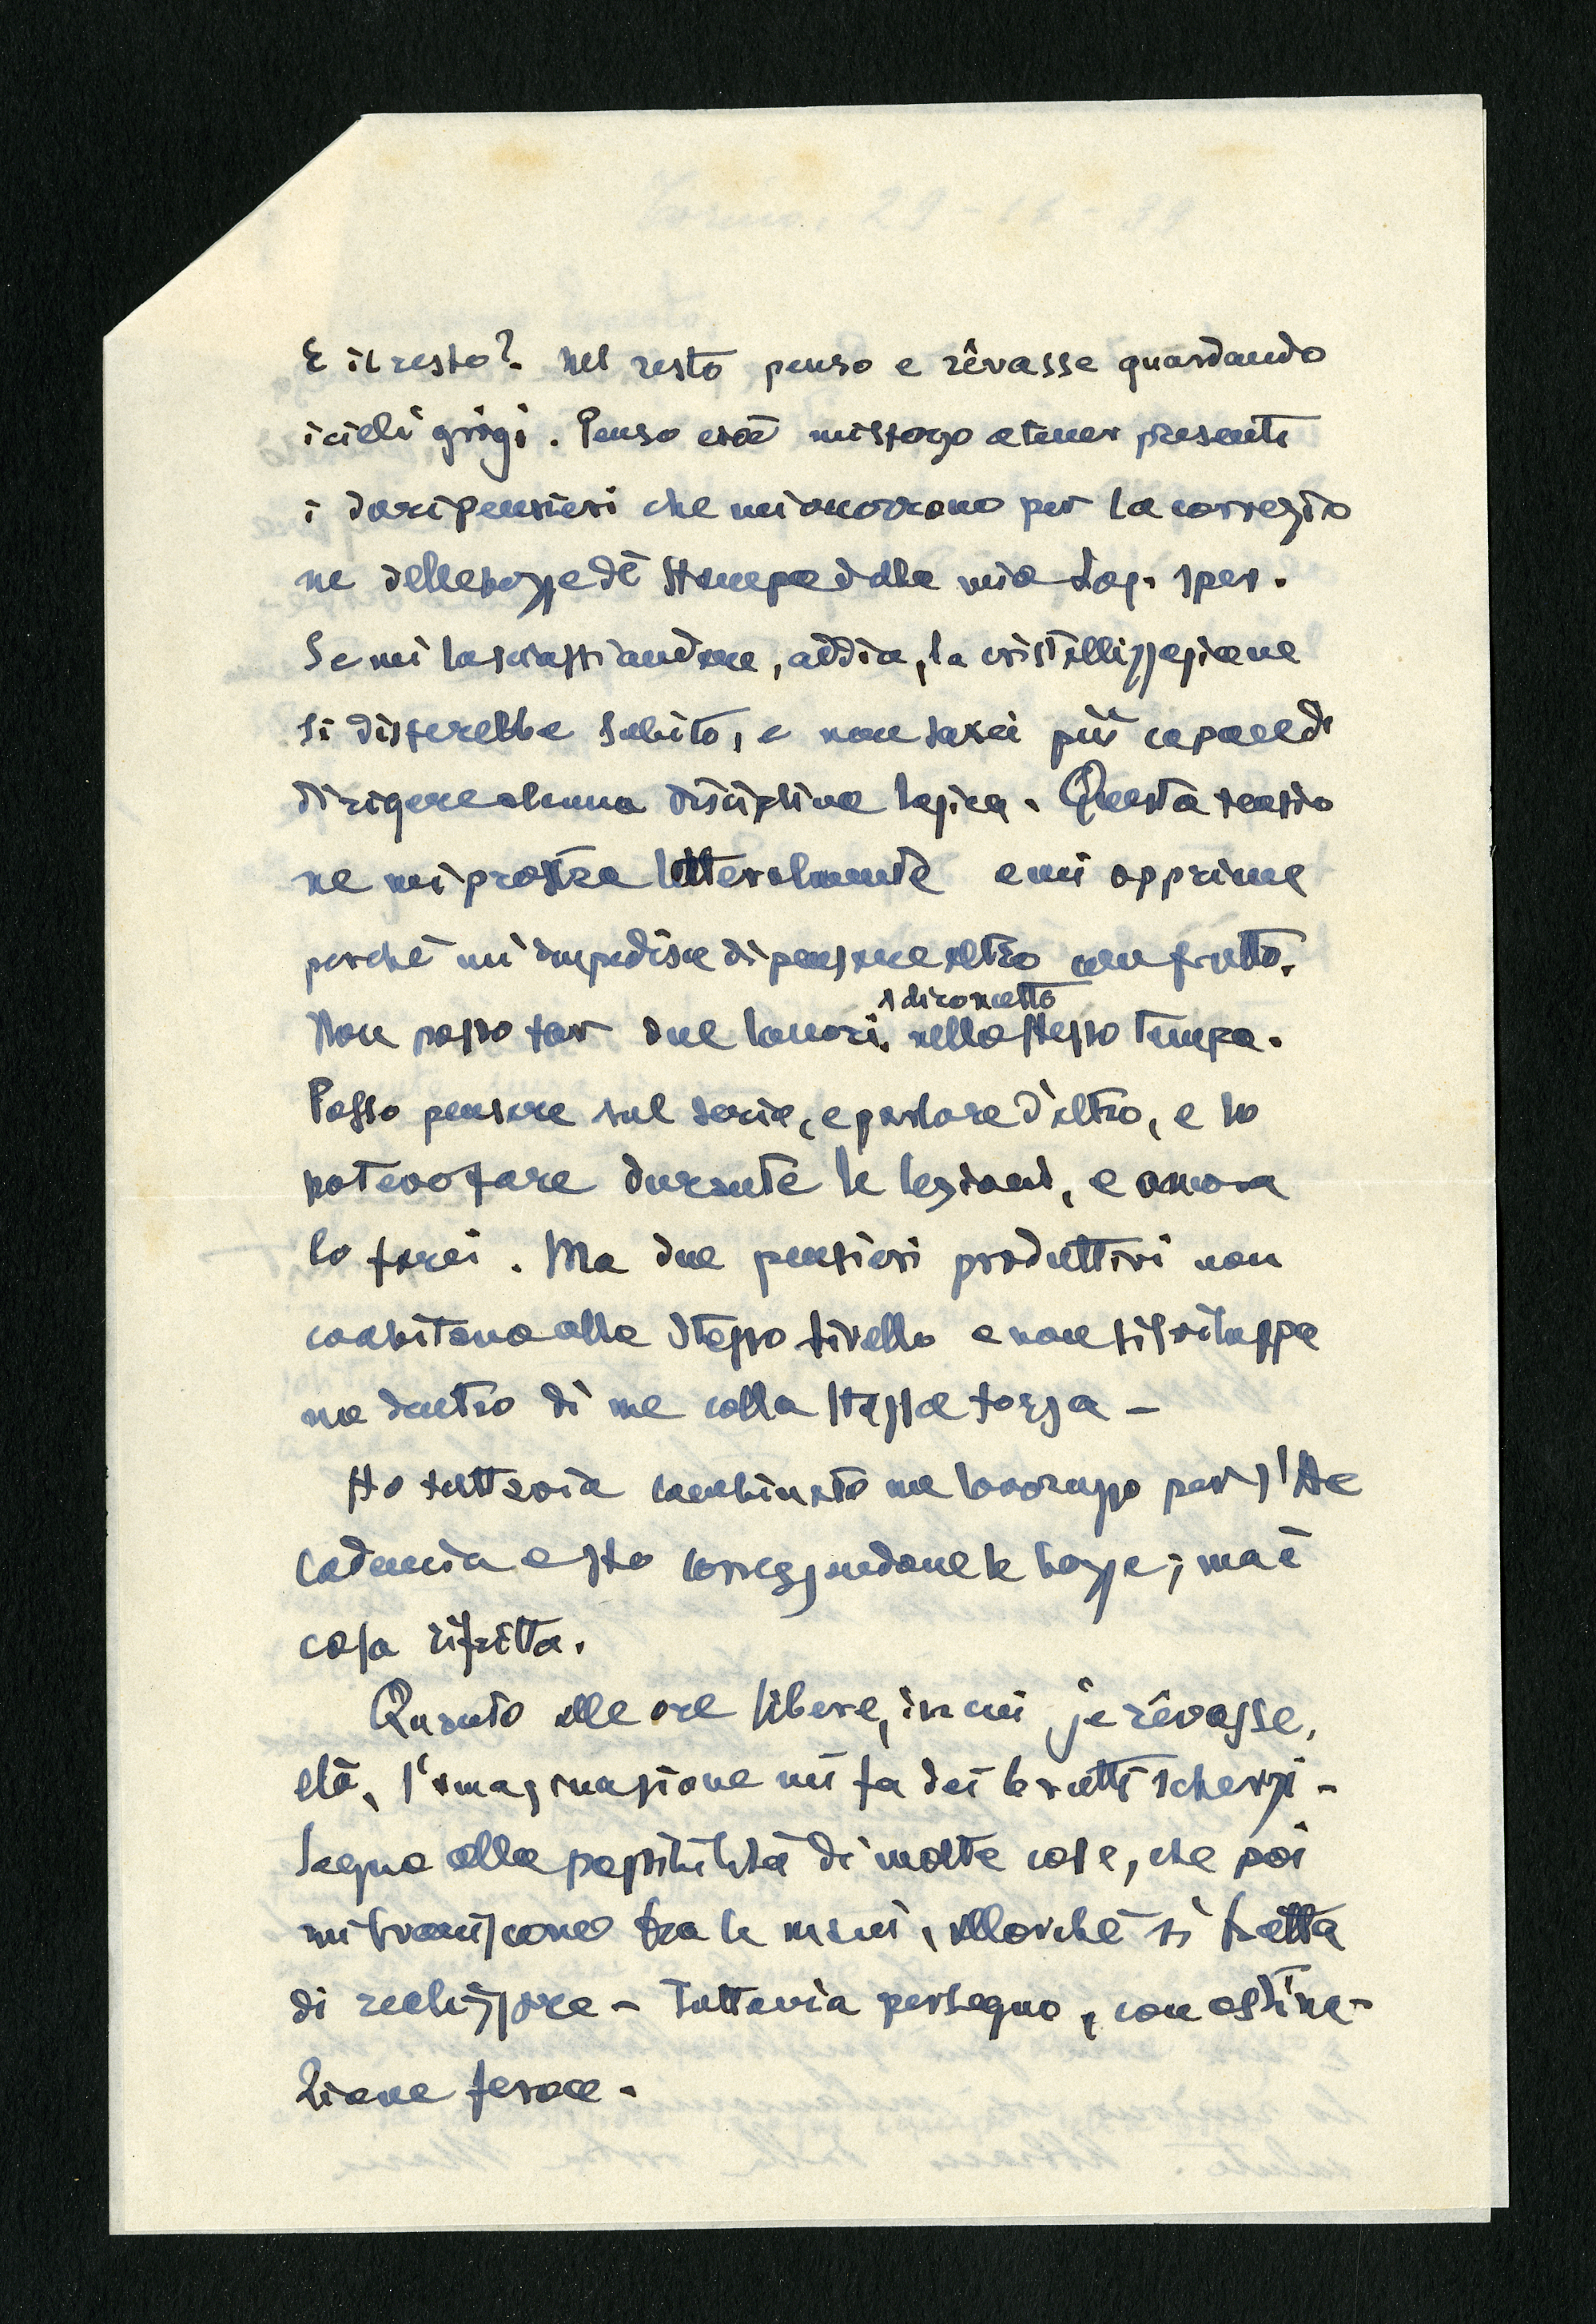 E il resto? Nel resto penso e rêvasse guardando
i cieli grigi. Penso cioè mi sforzo a tener presenti
i dori pensieri che mi occorrono per la correzio
ne delle bozze di stampa della mia Log. sper.
Se mi lasciassi andare, addio, la cristallizzazione
si disferebbe subito, e non sarei più capace di
dirigere alcuna disciplina logica. Questa tensio
ne mi prostra letteralmente e mi opprime
perché mi impedisce di pensare altro con frutto.
a dirometto
Non posso far due lavori, nello stesso tempo.
Posso pensare sul serio, e parlare d'altro, e lo
potevo fare durante le lezioni, e ancora
lo farei. Ma due pensieri produttivi non
coabitano allo stesso livello e non si sviluppa
no dentro di me colla stessa forza –
Ho tuttavia combinato un lavoruzzo per l'Ac
cademia e sto correggendone le bozze; ma è
cosa rifritta.
Quanto alle ore libere, in cui je rêvasse,
ehà, l'imaginazione mi fa dei brutti scherzi –
Sogno alla possibilità di molte cose, che poi
mi svaniscono tra le mani, allorché si tratta
di realizzare – Tuttavia perseguo, con ostina-
zione feroce.